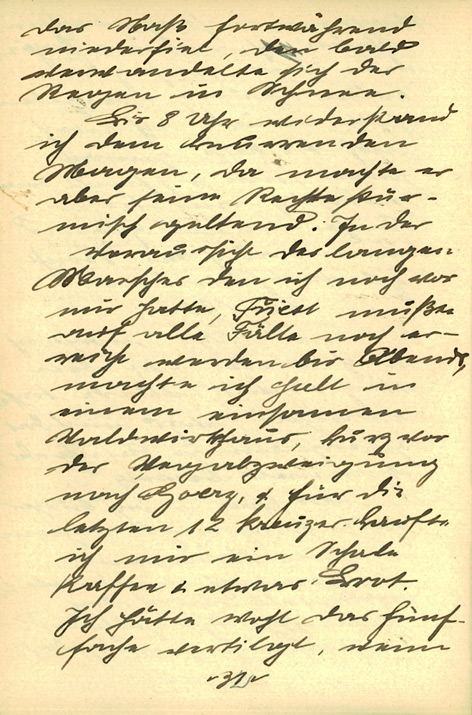 das Naß fortwährend
niederfiel, den bald
verwandelte sich der
Regen in Schnee.
Bis 8 Uhr widerstand
ich dem knurrenden
Magen, da machte er
aber seine Rechte stür-
misch geltend. In der
Voraussicht des langen
Marsches den ich noch vor
mir hatte, Triest mußte
auf alle Fälle noch er-
reicht werden bis Abends,
machte ich Halt in
einem einsamen
Waldwirthaus, kurz vor
der Wegabzweigung
nach Goerz, & für die
letzten 12 Kreuzer kaufte
ich mir ein Schale
Kaffee & etwas Brot.
Ich hätte wohl das fünf-
fache vertilgt, wenn